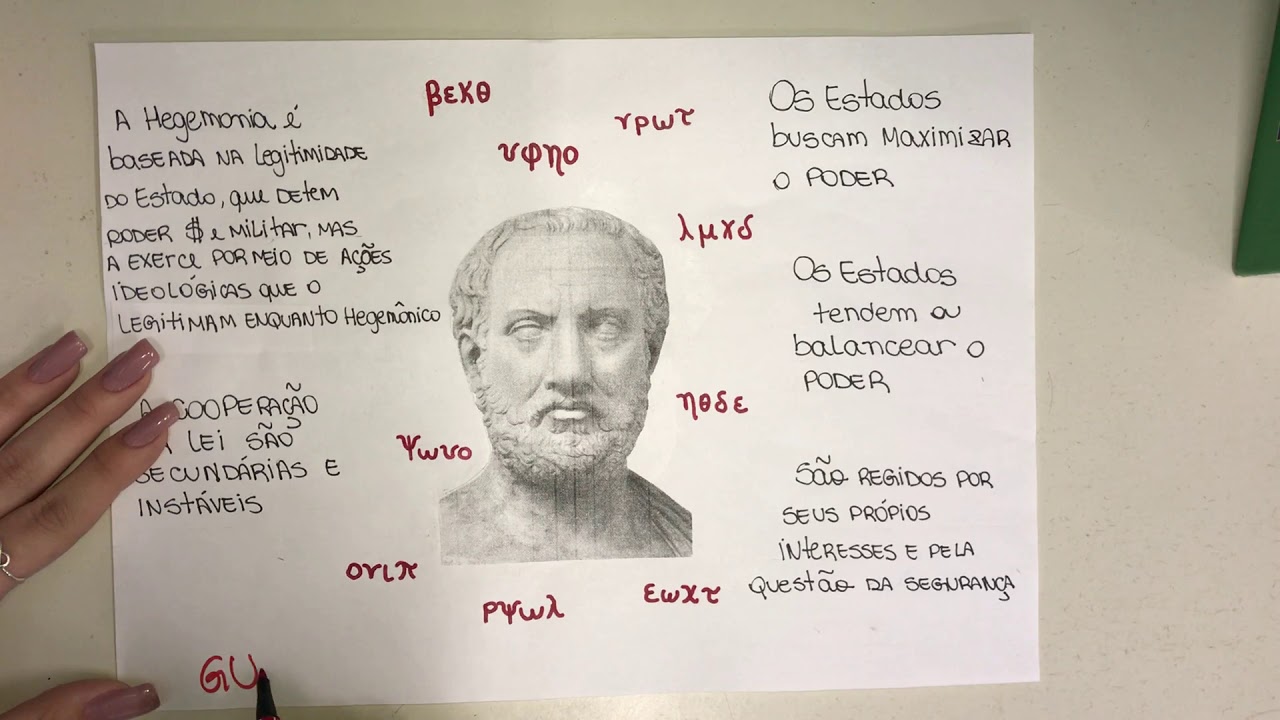 A Hegemonia é
baseada na legitimidade
do Estado, que detem
poder $ e militar, mas
a exerce por meio de ações
ideológicas que o
legitimam enquanto Hegemônico
A COOPERAÇÃO
LEI SÃO
SECUNDÁRIAS E
INSTÁVEIS
βεκθ
γρωτ
υφηο
λμχδ
ηθδε
ψωνο
ογιπ
ρψωλ
εωχτ
Os Estados
buscam Maximizar
o PODER
Os Estados
tendem a
balancear o
PODER
São REGIDOS POR
SEUS PRÓPIOS
INTERESSES E PELA
QUESTÃO DA SEGURANÇA
GU